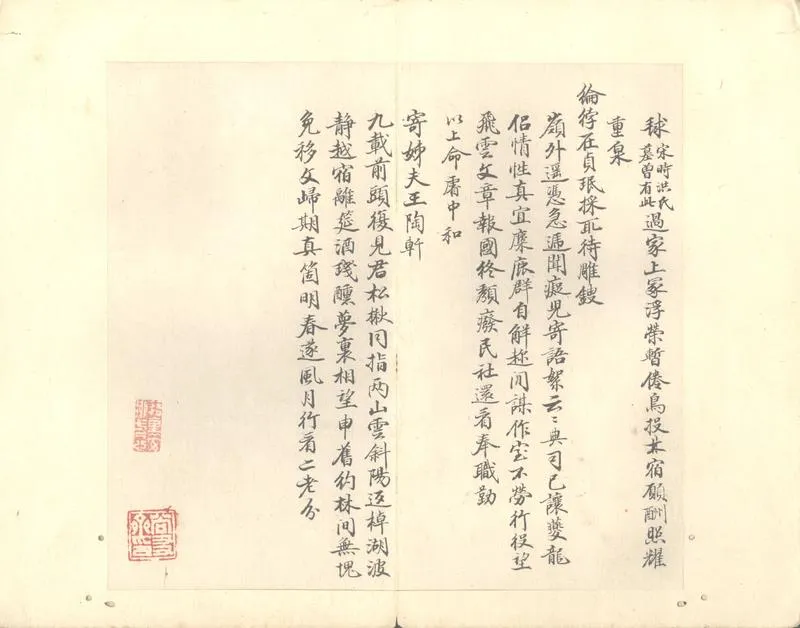 球宋時洪氏墓曽有此過家上冢浮榮暫倦鳥投林宿願酬照耀
重泉
綸綍在貞珉採取待雕鎪
嶺外遥憑急逓聞癡児寄語絮云〻典司已讓夔龍
侣情性真宜麋鹿群自解趂閒謀作室不勞行役望
飛雲文章報國終頽癈民社還看奉職勤
以上命屠中和
寄姊夫王陶軒
九載前頭復見君松楸同指两山雲斜陽返棹湖波
静越宿離筵酒琖醺夢裏相望申舊約林間無愧
免移文歸期真箇明春遂風月行看二老分